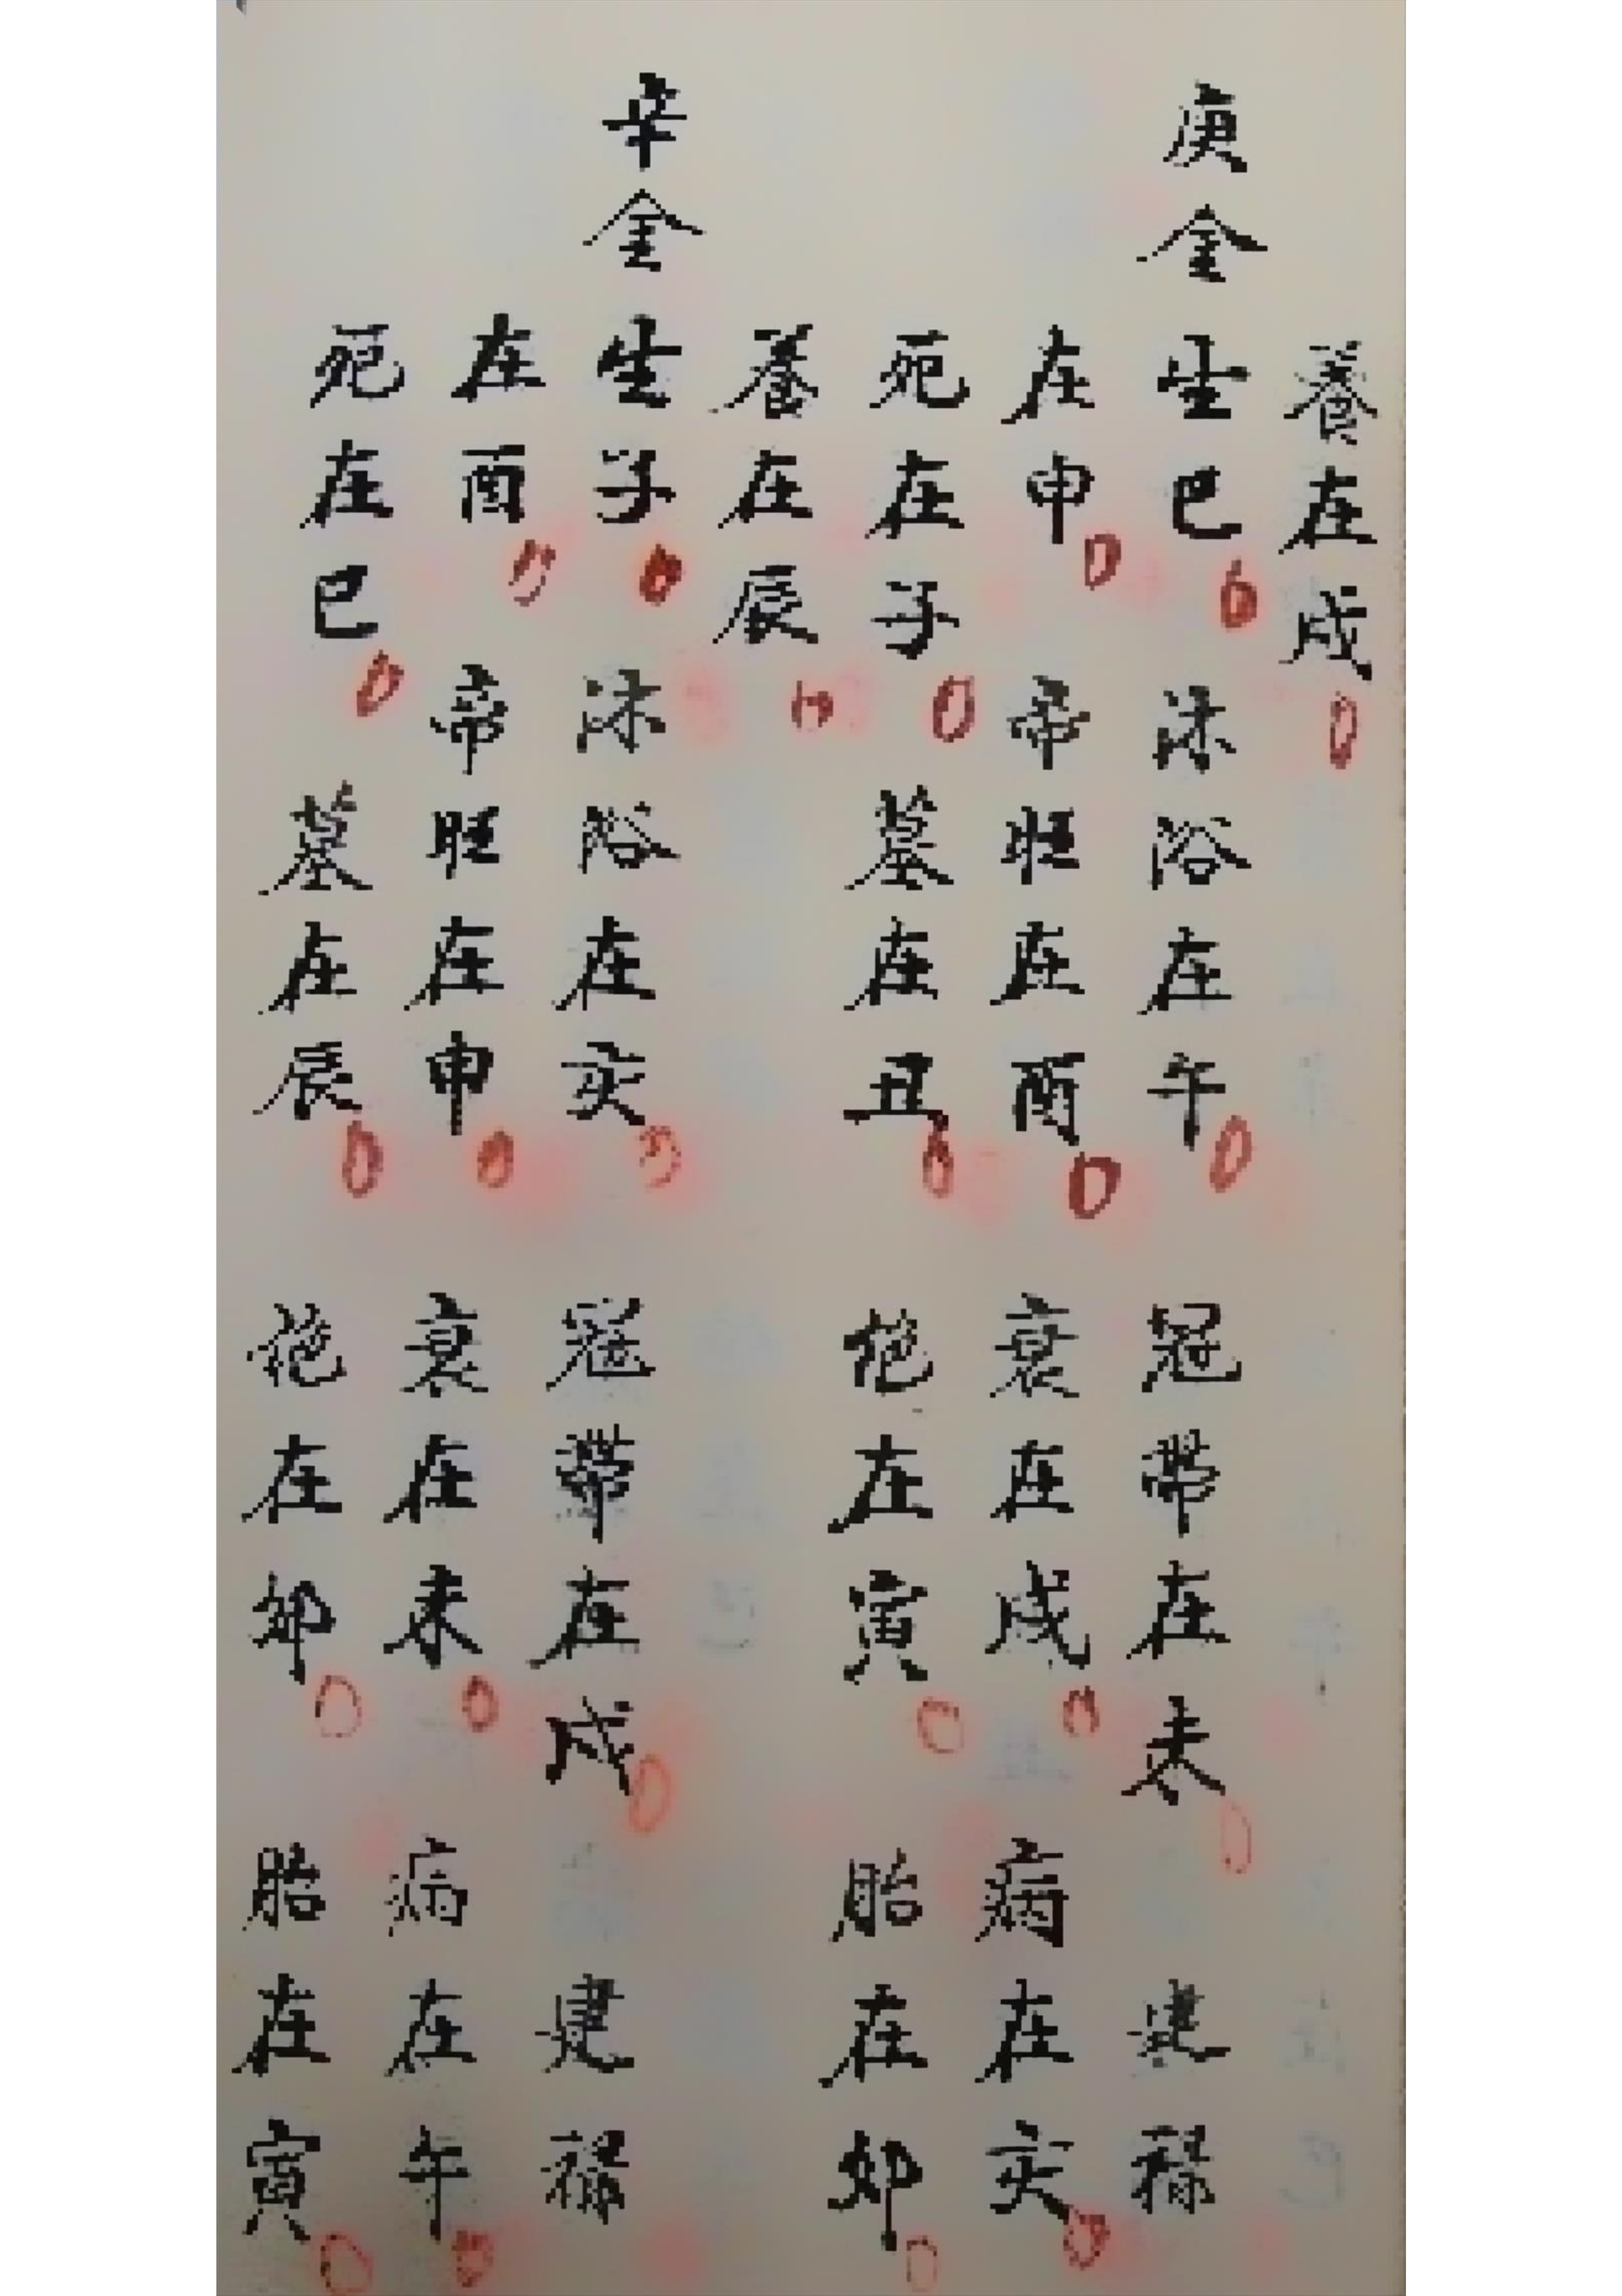 養在戌
庚金生巳 沐浴在午 冠帶在未 建祿
在申 帝旺在酉 衰在戌 病在亥
死在子 墓在丑 絶在寅 胎在卯
養在辰
辛金生子 沐浴在亥 冠帶在戌 建祿
在酉 帝旺在申 衰在未 病在午
死在巳 墓在辰 絶在卯 胎在寅